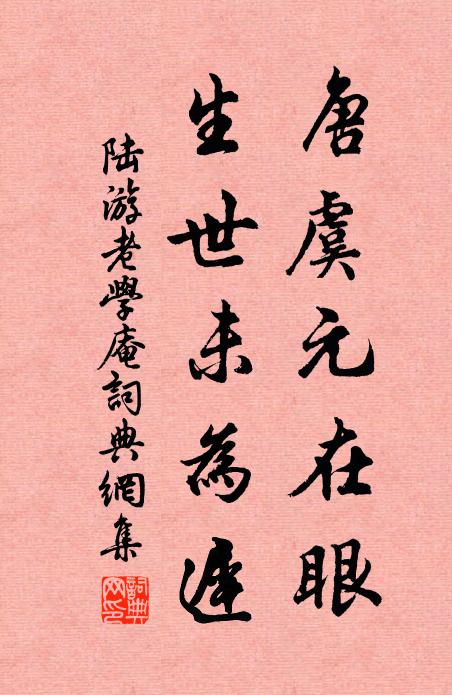 唐虞元在眼
生世未為遲
陆游老學庵詞典網集
詞典網印